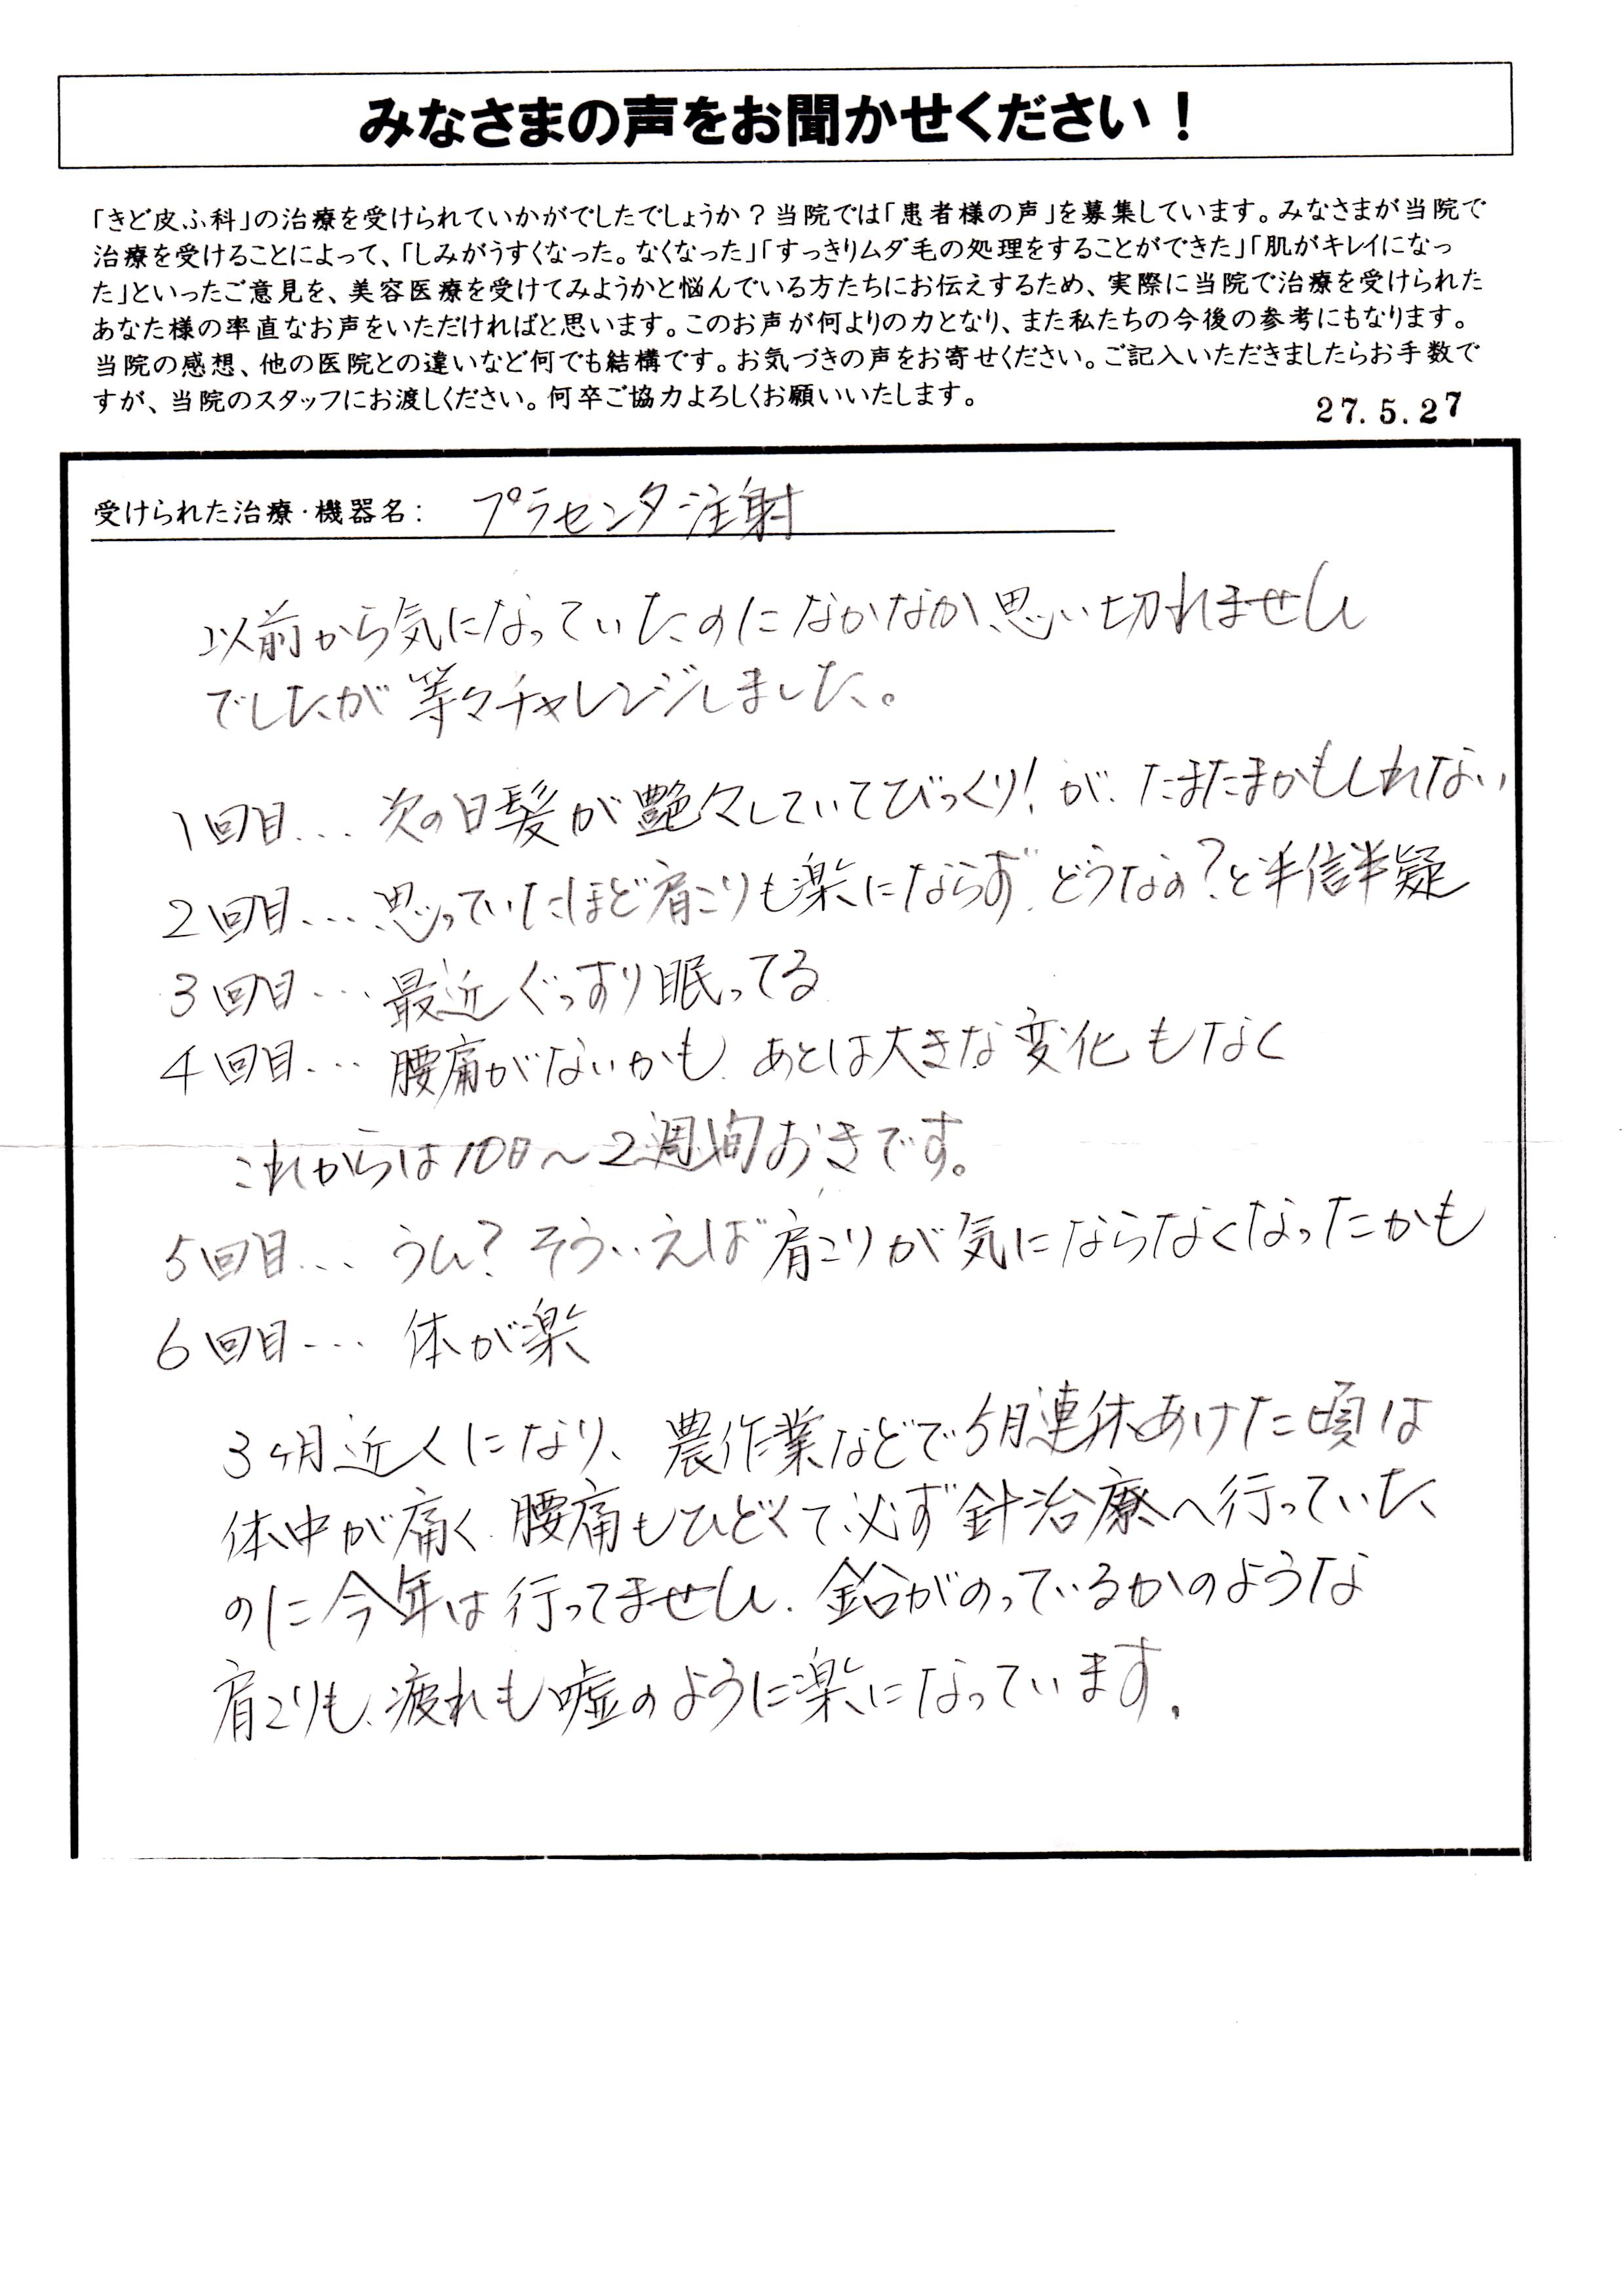 みなさまの声をお聞かせください！
「きど皮ふ科」の治療を受けられていかがでしたでしょうか？当院では「患者様の声」を募集しています。みなさまが当院で
治療を受けることによって、「しみがうすくなった。なくなった」「すっきりムダ毛の処理をすることができた」「肌がキレイになっ
た」といったご意見を、美容医療を受けてみようかと悩んでいる方たちにお伝えするため、実際に当院で治療を受けられた
あなた様の率直なお声をいただければと思います。このお声が何よりの力となり、また私たちの今後の参考にもなります。
当院の感想、他の医院との違いなど何でも結構です。お気づきの声をお寄せください。ご記入いただきましたらお手数で
すが、当院のスタッフにお渡しください。何卒ご協力よろしくお願いいたします。
27.5.27
受けられた治療・機器名： プラセンタ注射
以前から気になっていたのになかなか思い切れません
でしたが 等々チャレンジしました。
1回目... 次の日髪が艶々していてびっくり！が、たまたまかもしれない
2回目... 思っていたほど肩こりも楽にならず、どうなの？と半信半疑
3回目... 最近ぐっすり眠ってる
4回目... 腰痛がないかも、あとは大きな変化もなく
これからは10日〜2週間おきです。
5回目... うん？そういえば肩こりが気にならなくなったかも
6回目... 体が楽
3ヶ月近くになり、農作業などで5月連休あけた頃は
体中が痛く、腰痛もひどくて、必ず針治療へ行っていた
のに今年は行ってません。鉛がのっているかのような
肩こりも、疲れも嘘のように楽になっています。